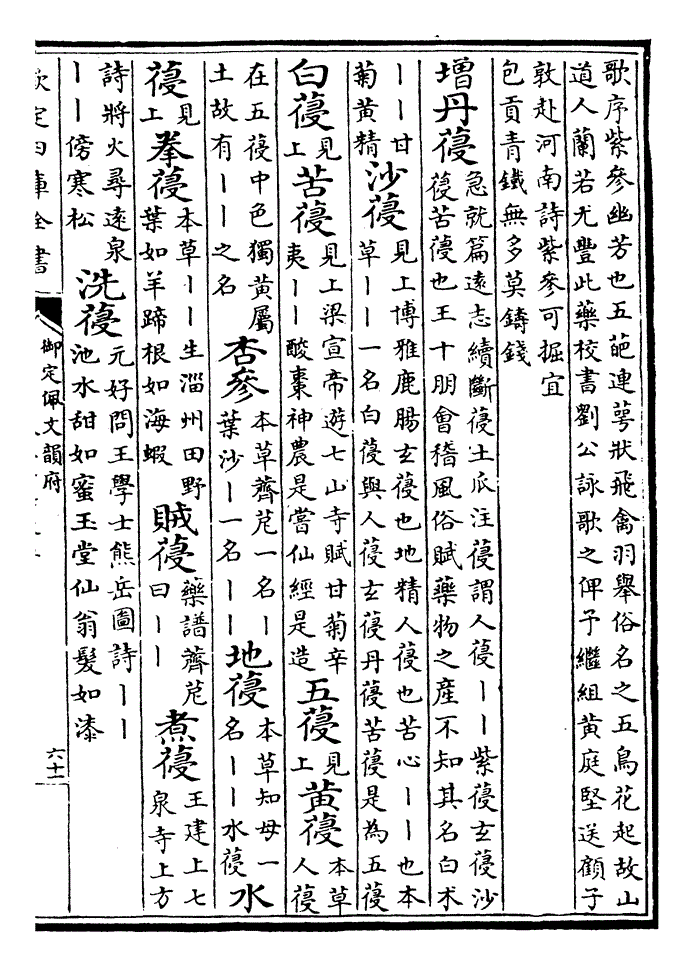 歌序紫參幽芳也五葩連萼狀飛禽羽舉俗名之五鳥花起故山
道人蘭若尤豐此藥校書劉公詠歌之俾予繼組黃庭堅送顧子
敦赴河南詩紫參可掘宜
包貢青鐵無多莫鑄錢
增丹蓡 急就篇遠志續斷蓡土瓜注蓡謂人蓡丨丨紫蓡玄蓡沙
蓡苦蓡也王十朋會稽風俗賦藥物之產不知其名白朮
丨丨甘
菊黃精
沙蓡 見上博雅鹿腸玄蓡也地精人蓡也苦心丨丨也本
草丨丨一名白蓡與人蓡玄蓡丹蓡苦蓡是為五蓡
白蓡 見
上
苦蓡 見上梁宣帝遊七山寺賦甘菊辛
夷丨丨酸棗神農是嘗仙經是造
五蓡 見
上
黃蓡 本草
人蓡
在五蓡中色獨黃屬
土故有丨丨之名
杏參 本草薺苨一名丨
葉沙丨一名丨丨
地蓡 本草知母一
名丨丨水蓡
水
蓡 見
上
拳蓡 本草丨丨生淄州田野
葉如羊蹄根如海蝦
賊蓡 藥譜薺苨
曰丨丨
煮蓡 王建上七
泉寺上方
詩將火尋遠泉
丨丨傍寒松
洗蓡 元好問王學士熊岳圖詩丨丨
池水甜如蜜玉堂仙翁髮如漆
欽定四庫全書
御定佩文韻府
六十一